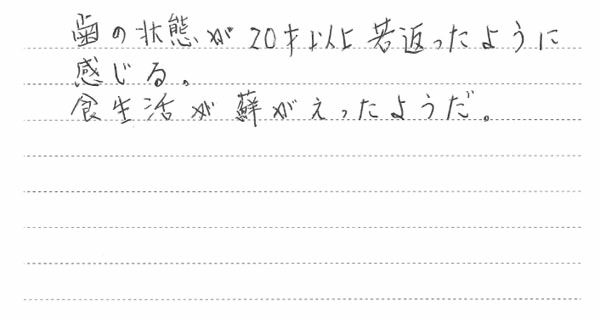 歯の状態が20才以上若返ったように
感じる。
食生活が蘇がえったようだ。